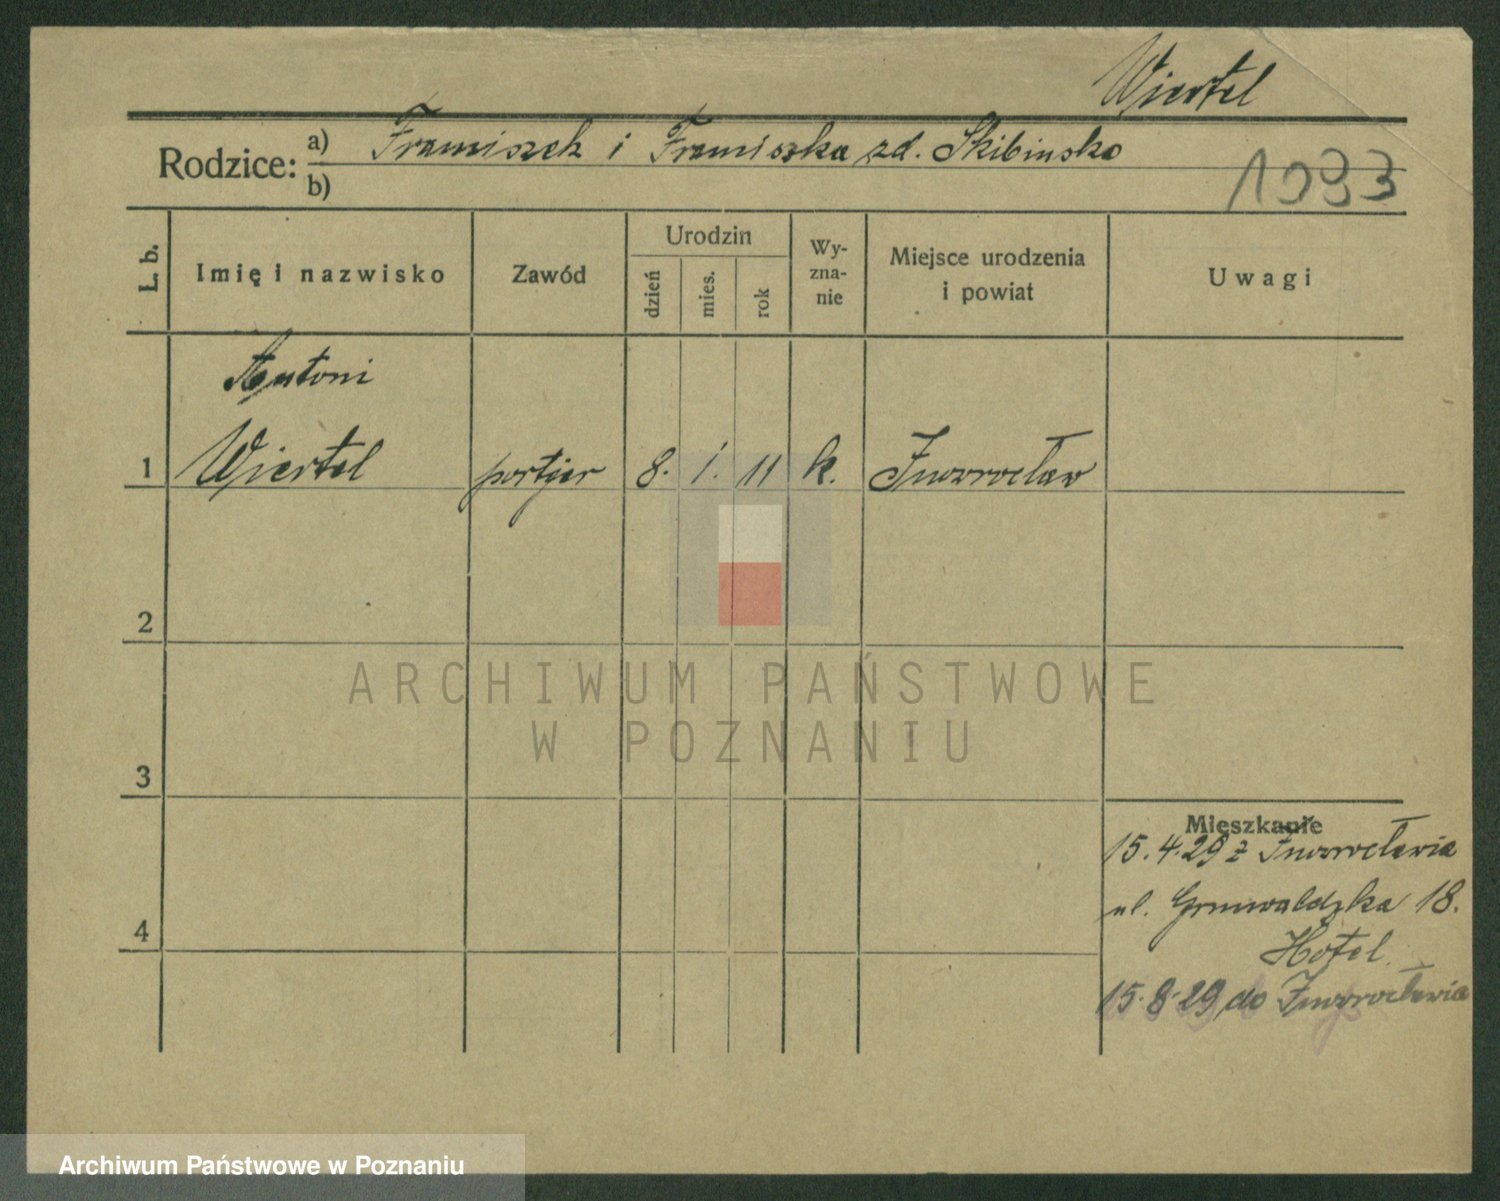 Wiertel
Rodzice: a) Franciszek i Franciszka zd. Skibinska
b)
1093
L. b. Imię i nazwisko Zawód Urodzin dzień mies. rok Wy-zna-nie Miejsce urodzenia i powiat Uwagi
Antoni
1 Wiertel portjer 8. 1. 11 k. Inowrocław
2
3
4
Mieszkanie
15.4.29 z Inowrocławia
ul. Grunwaldzka 18.
Hotel.
15.8.29 do Inowrocławia
ARCHIWUM PAŃSTWOWE
W POZNANIU
Archiwum Państwowe w Poznaniu